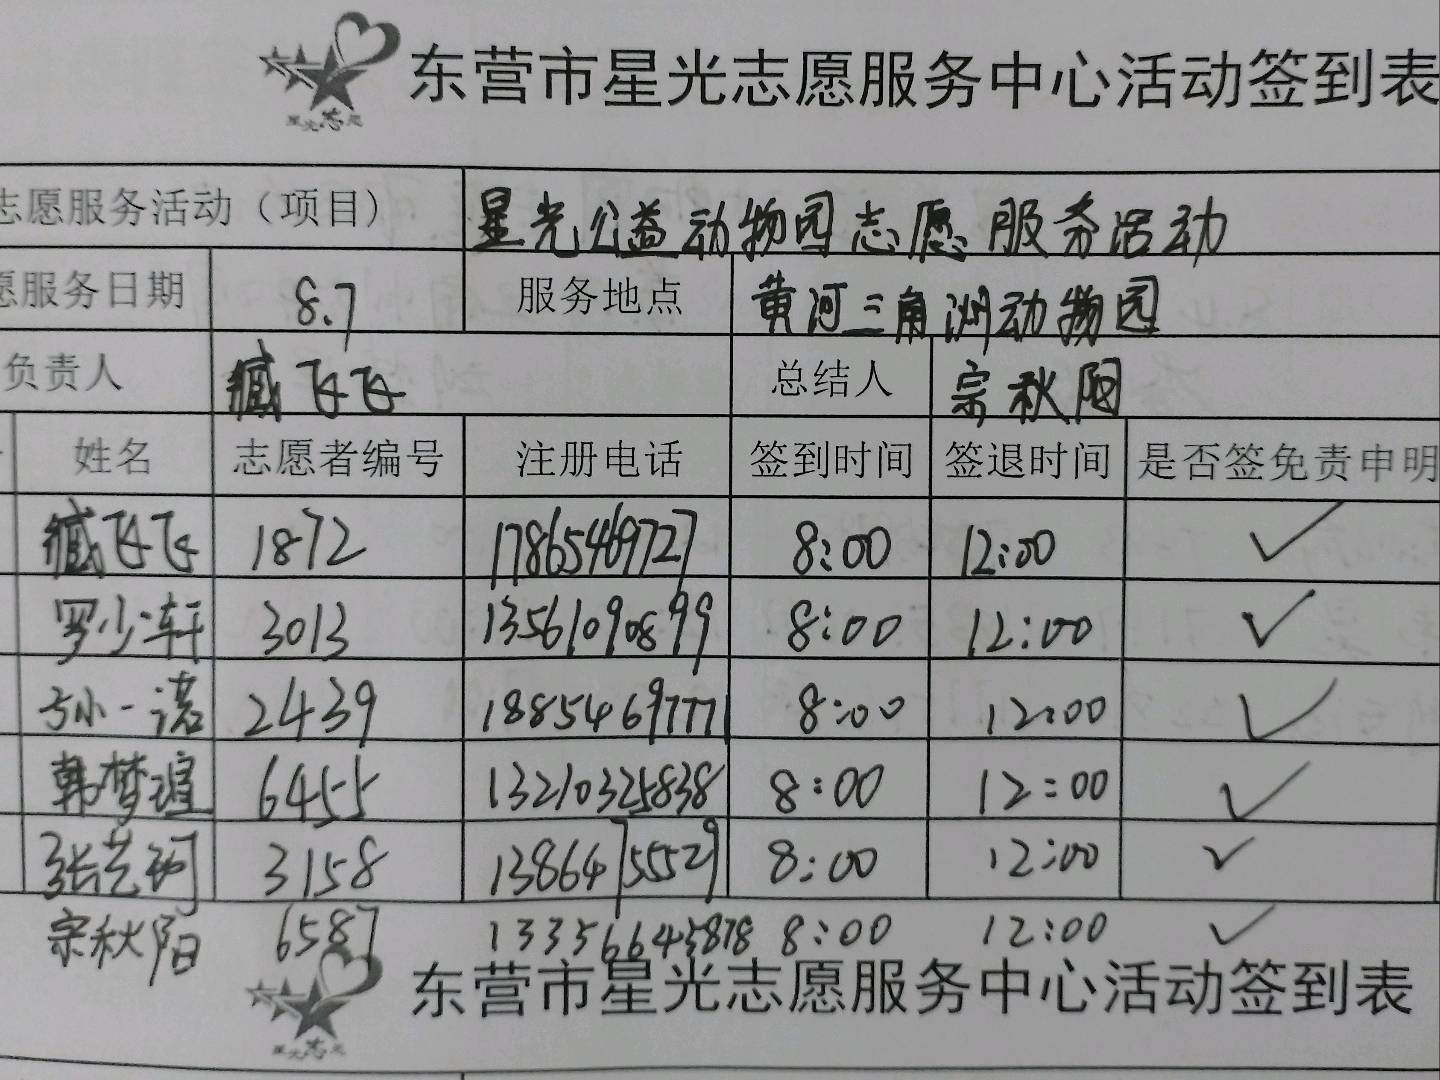 星光志愿
东营市星光志愿服务中心活动签到表
志愿服务活动（项目） 星光公益动物园志愿服务活动
愿服务日期 8.7 服务地点 黄河三角洲动物园
负责人 臧飞飞 总结人 宗秋阳
姓名 志愿者编号 注册电话 签到时间 签退时间 是否签免责申明
臧飞飞 1872 17865469727 8:00 12:00 ✓
罗少轩 3013 13561090899 8:00 12:00 ✓
孙一诺 2439 18854697771 8:00 12:00 ✓
韩梦瑄 6455 13210325838 8:00 12:00 ✓
张艺珂 3158 13864755529 8:00 12:00 ✓
宗秋阳 6587 13356645878 8:00 12:00 ✓
东营市星光志愿服务中心活动签到表
星光志愿